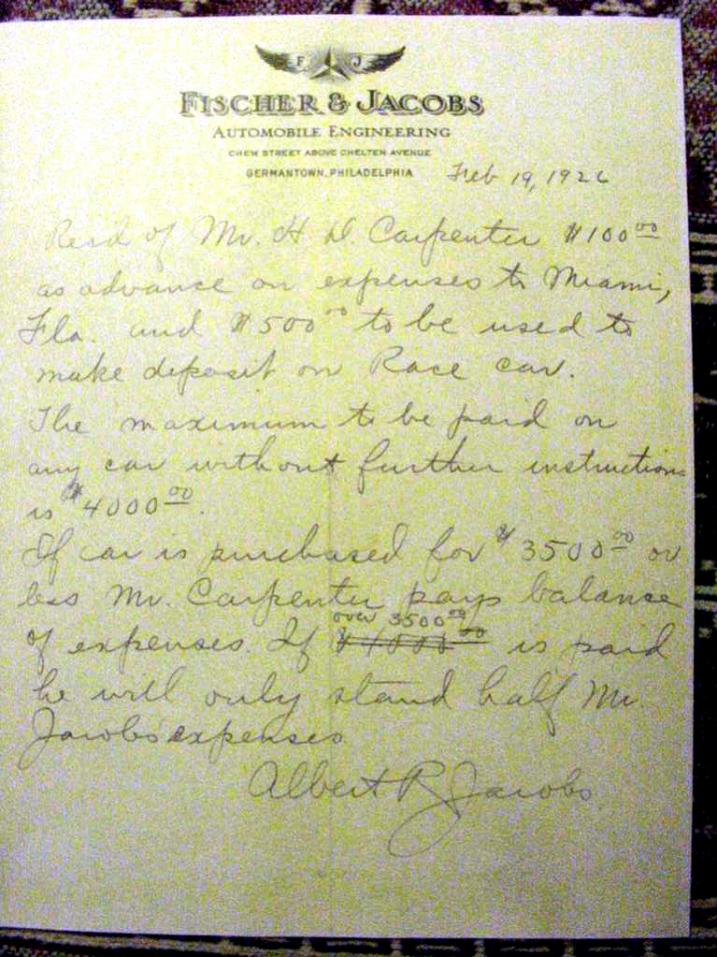 F J
FISCHER & JACOBS
AUTOMOBILE ENGINEERING
CHEW STREET ABOVE CHELTEN AVENUE
GERMANTOWN, PHILADELPHIA
Feb 19, 1926
Recd of Mr. H. D. Carpenter $100.00
as advance on expenses to Miami,
Fla. and $500.00 to be used to
make deposit on Race car.
The maximum to be paid on
any car without further instructions
is $4000.00.
If car is purchased for $3500.00 or
less Mr. Carpenter pays balance
over 3500.00
of expenses. If $4000.00 is paid
he will only stand half Mr.
Jacobs expenses
Albert R Jacobs